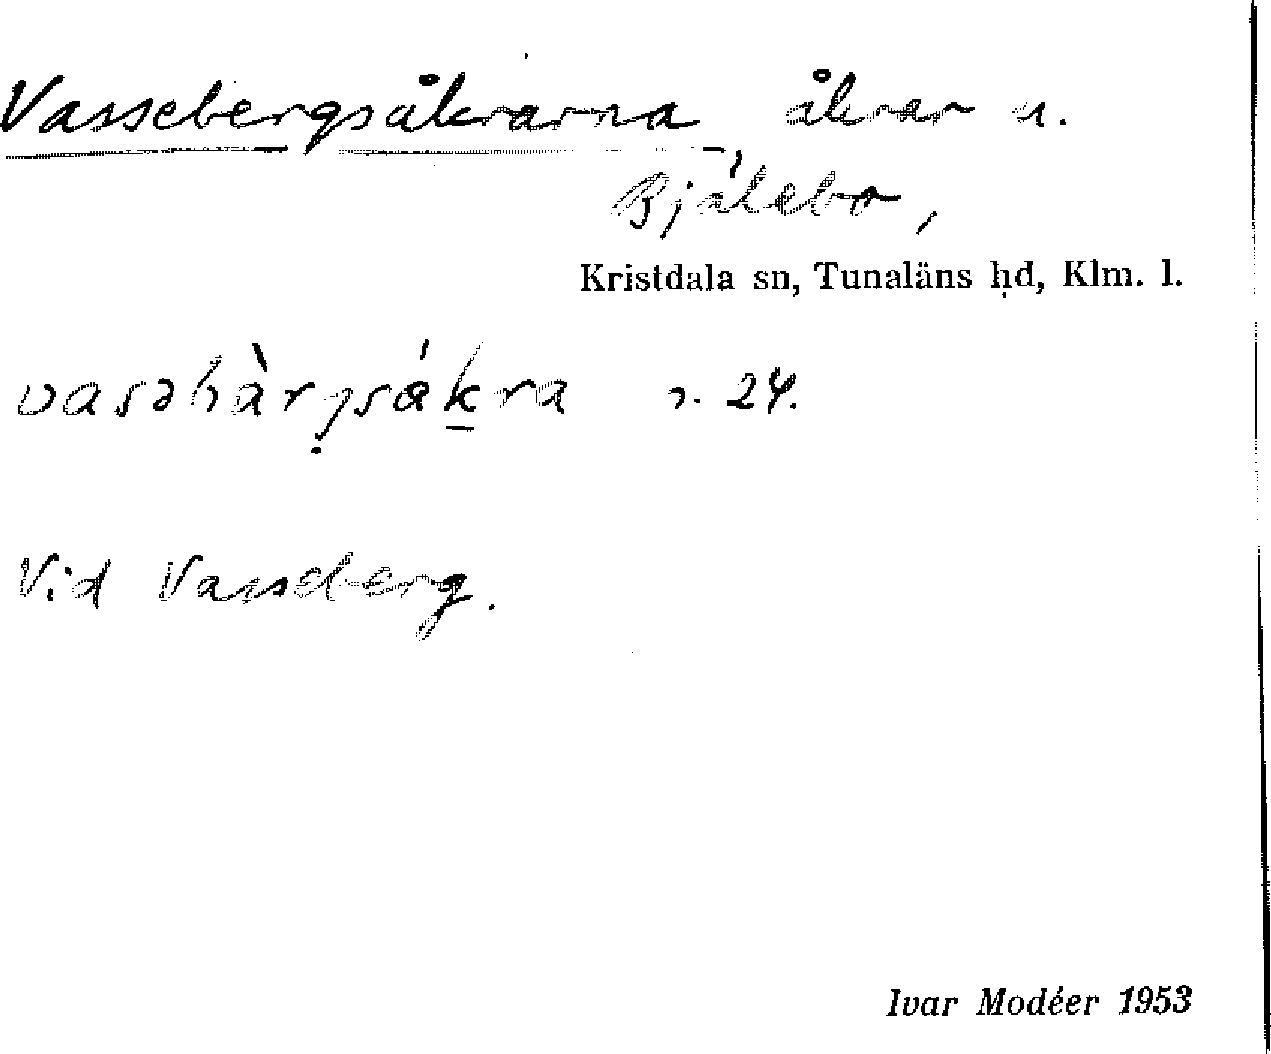 Vassebergsåkrarna, åkrar u.
Bjälebo,
Kristdala sn, Tunaläns hd, Klm. l.
24.
Vid Vasseberg.
Ivar Modéer 1953